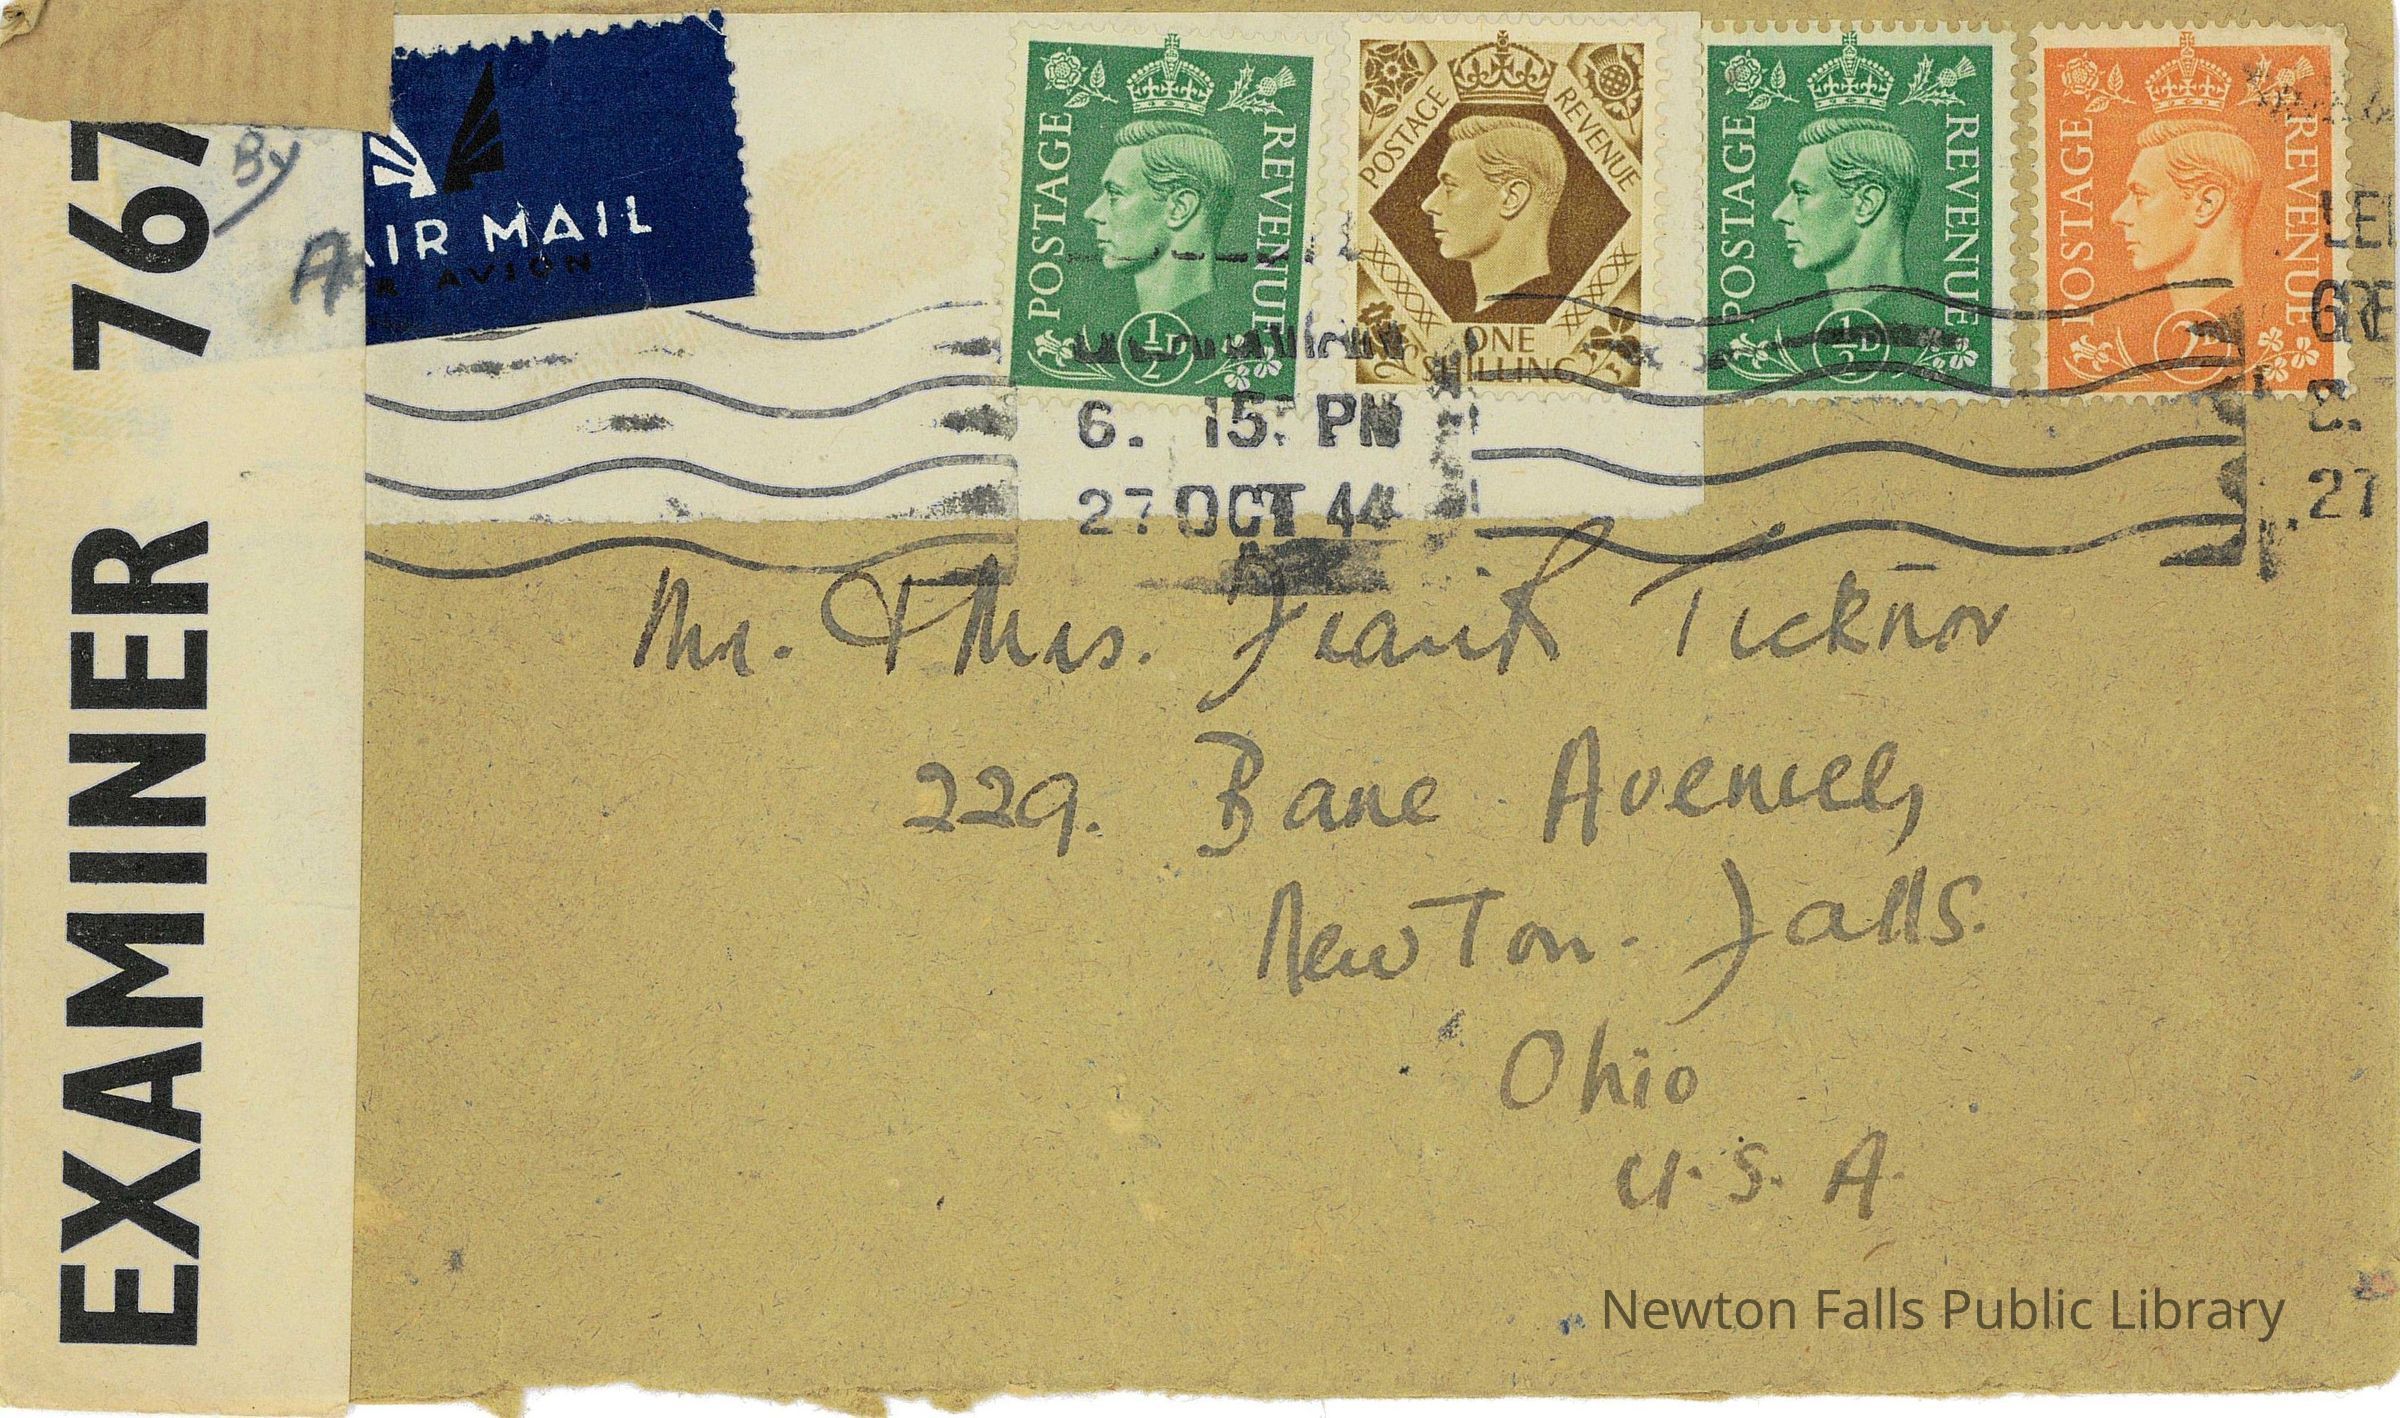 EXAMINER 767
By
AIR MAIL
AVION
POSTAGE REVENUE
½D
POSTAGE REVENUE
ONE
SHILLING
POSTAGE REVENUE
½D
POSTAGE REVENUE
2D
6. 15 PM
27 OCT 44
27
Mr. & Mrs. Frank Ticknor
229. Bane Avenue,
Newton. Falls.
Ohio
U.S.A.
Newton Falls Public Library